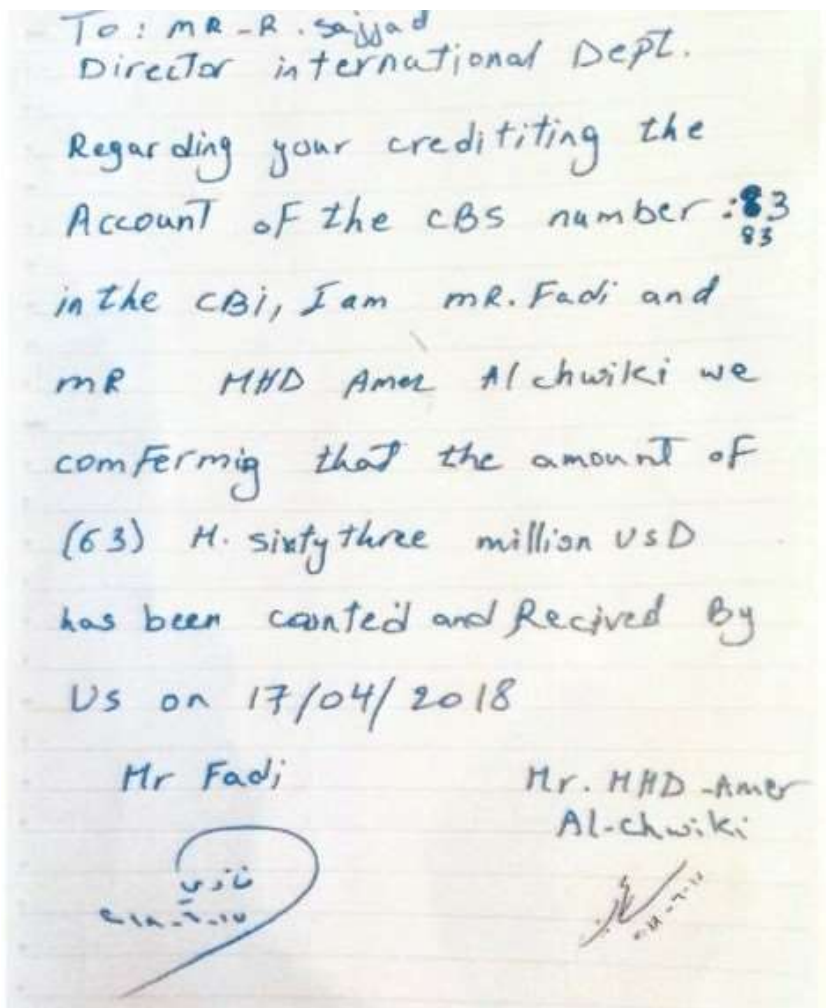 To: MR-R. sajjad
Director international Dept.
Regarding your credititing the
Account of the CBS number: 83
83
in the CBi, I am mR. Fadi and
mR MHD Amer Alchwiki we
comfermig that the amount of
(63) M. sixty three million UsD
has been counted and Recived By
Us on 17/04/2018
Mr Fadi
Mr. MHD-Amer
Al-chwiki
فادي